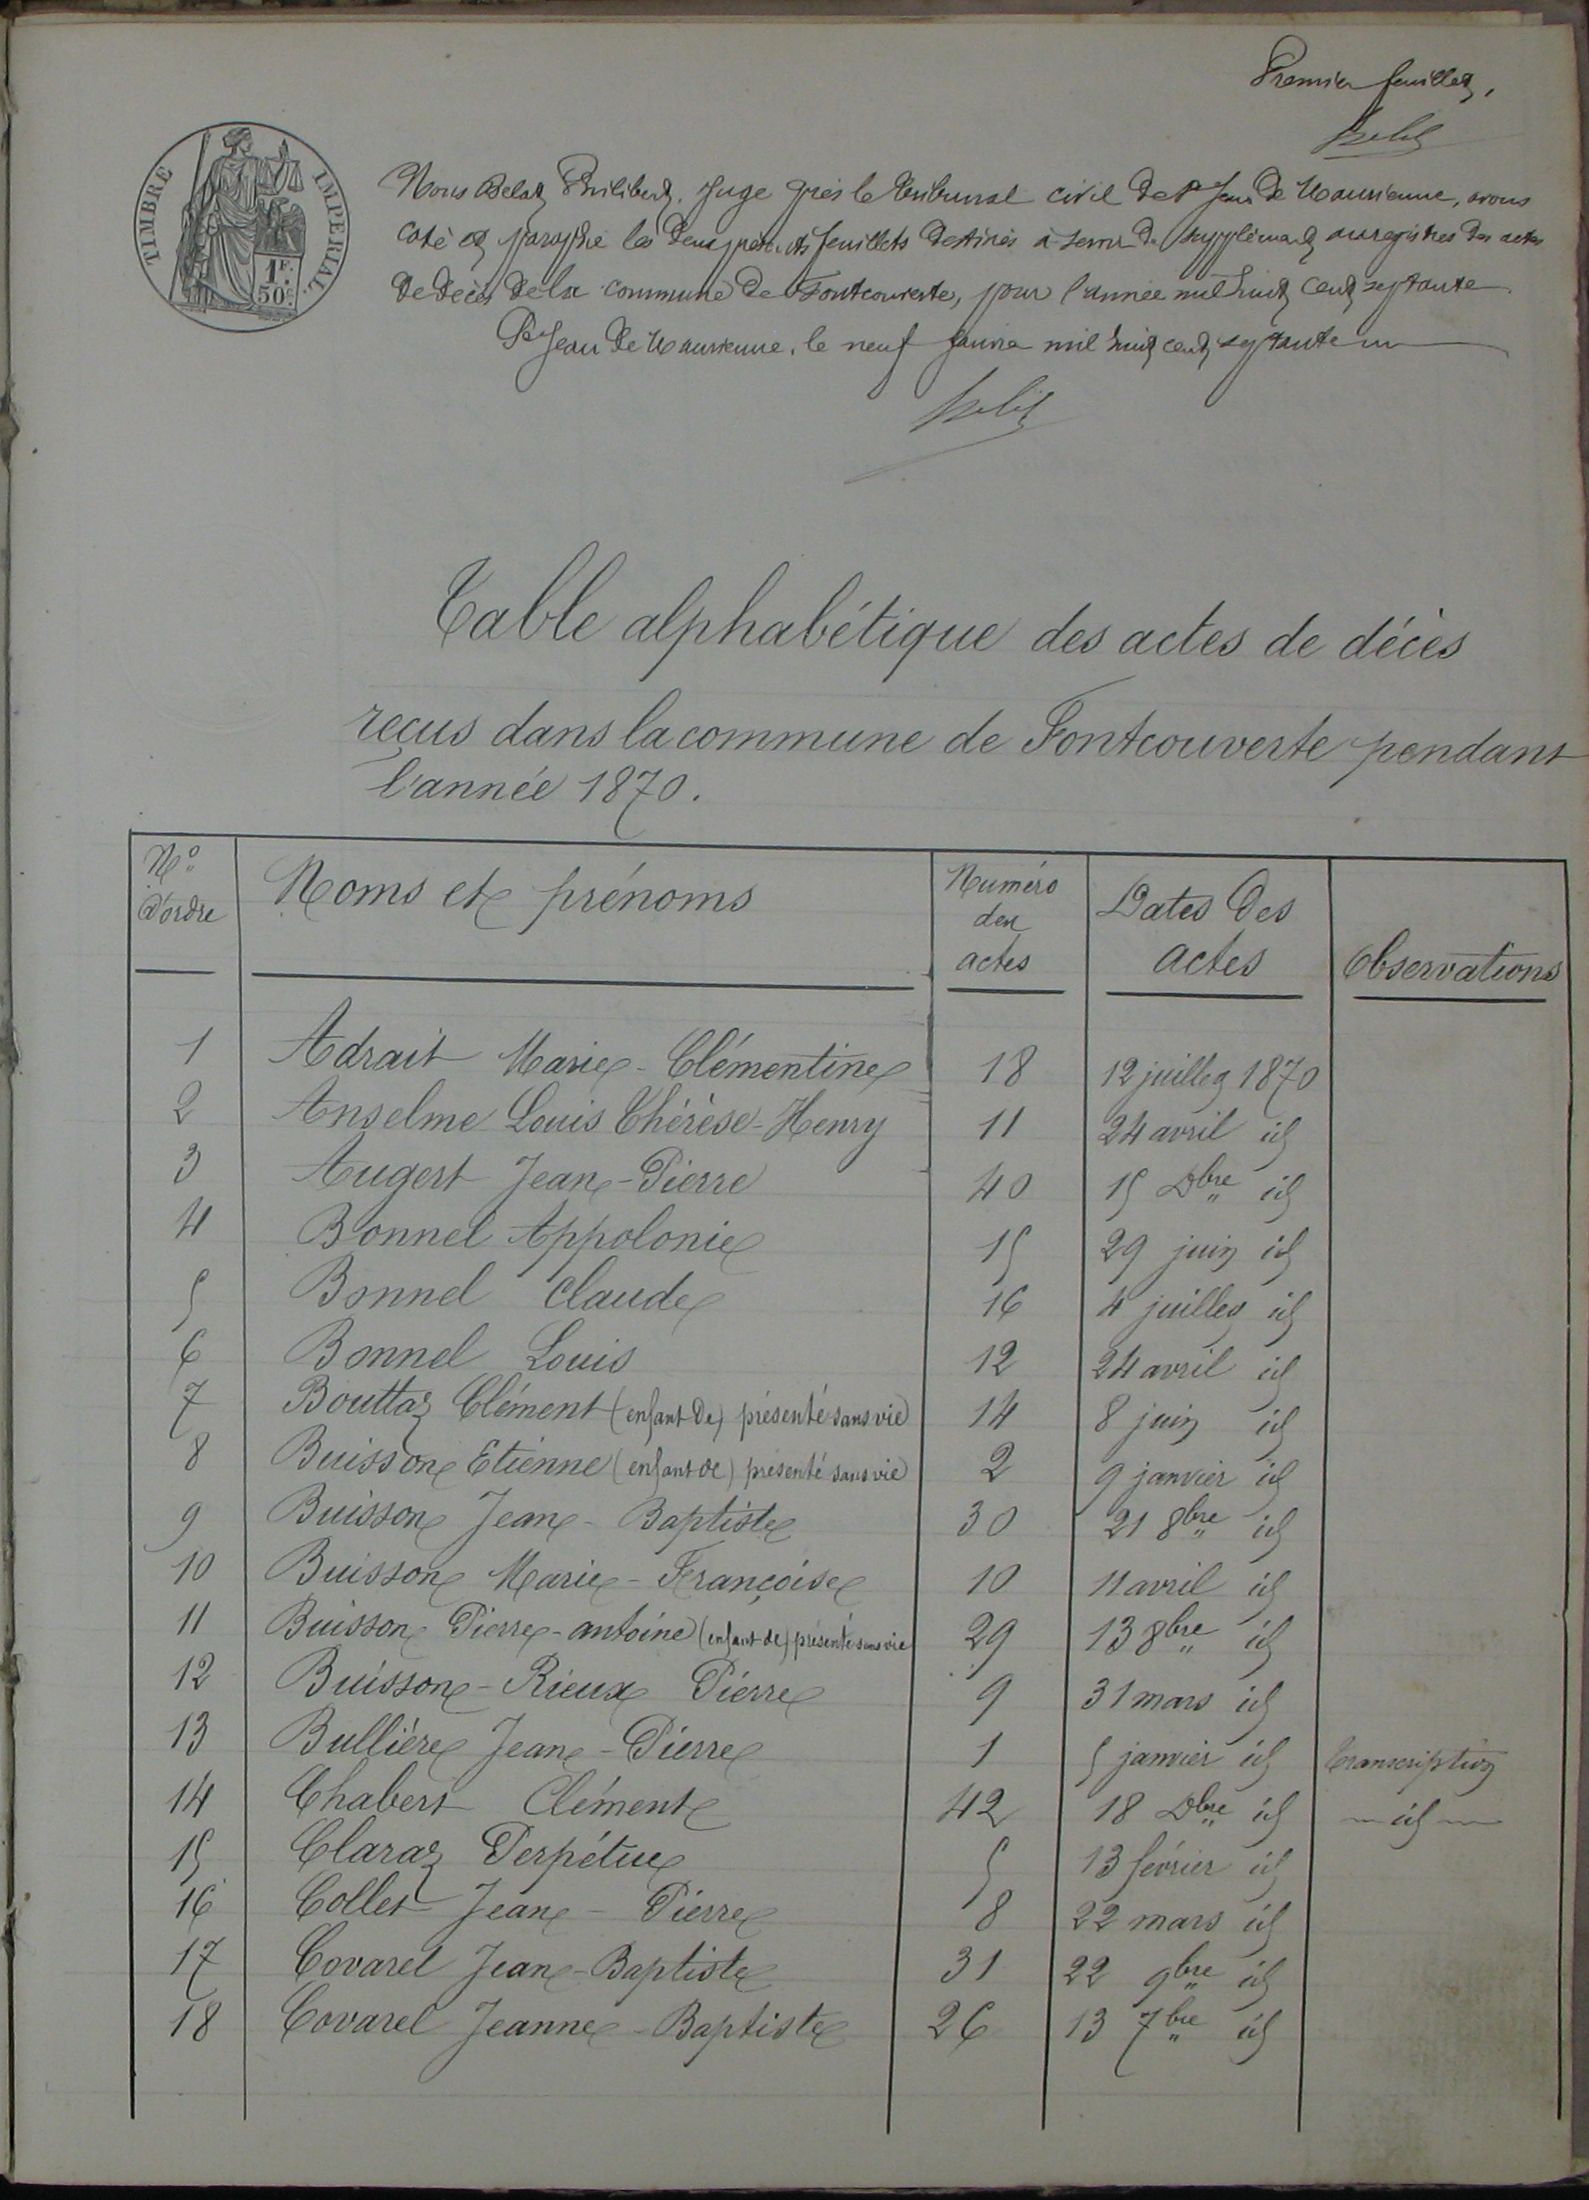 Premier feuillet,
TIMBRE IMPERIAL.
1F.
50c.
Nous Philibert, Juge près le Tribunal civil de St Jean de Maurienne, avons
coté et paraphé les deux présents feuillets destinés à servir de supplément aux registres des actes
de décès de la commune de Fontcouverte, pour l'année mil huit cent septante.
St Jean de Maurienne, le neuf janvier mil huit cent septante un
Table alphabétique des actes de décès
reçus dans la commune de Fontcouverte pendant
l'année 1870.
No d'ordre Noms et prénoms Numéro des actes Dates des actes Observations
1 Adrait Marie-Clémentine 18 12 juillet 1870
2 Anselme Louis Thérèse-Henry 11 24 avril id
3 Augert Jean-Pierre 40 15 Dbre id
4 Bonnel Appolonie 15 29 juin id
5 Bonnel Claude 16 4 juillet id
6 Bonnel Louis 12 24 avril id
7 Bouttaz Clément (enfant de) présenté sans vie 14 8 juin id
8 Buisson Etienne (enfant de) présenté sans vie 2 9 janvier id
9 Buisson Jean-Baptiste 30 21 8bre id
10 Buisson Marie-Françoise 10 11 avril id
11 Buisson Pierre-antoine (enfant de) présenté sans vie 29 13 8bre id
12 Buisson-Rieux Pierre 9 31 mars id
13 Bullière Jean-Pierre 1 5 janvier id Transcription
14 Chabert Clément 42 18 Dbre id — id —
15 Claraz Perpétue 5 13 février id
16 Collet Jean-Pierre 8 22 mars id
17 Covarel Jean-Baptiste 31 22 9bre id
18 Covarel Jeanne-Baptiste 26 13 7bre id